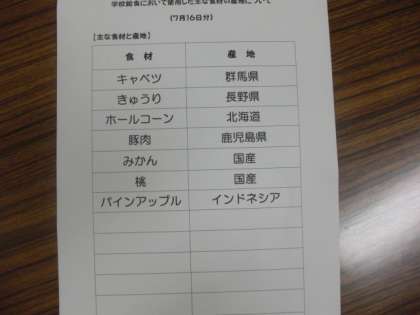 学校給食において使用した主な食材の産地について
(7月16日分)
【主な食材と産地】
食 材 産 地
キャベツ 群馬県
きゅうり 長野県
ホールコーン 北海道
豚肉 鹿児島県
みかん 国産
桃 国産
パインアップル インドネシア